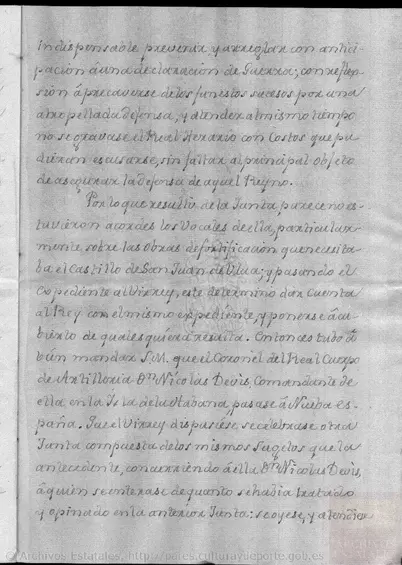 indispensable, prevenir, y arreglar con antici-
pacion á una declaracion de Guerra; con reflec-
sion á precaverse de los funestos sucesos por una
atropellada defensa, y atender al mismo tiempo
no se gravase el Real Herario con Costos que pu-
dieron escusarse, sin faltar al principal objeto
de asegurar la defensa de aquel Reyno.
Por lo que resultó de la Junta, parece no es-
tuvieron acordes los Vocales de ella, particular-
mente, sobre las Obras de fortificacion que necesita-
ba el Castillo de San Juan de Ulua; y pasando el
Expediente al Virrey, este determinó dar Cuenta
al Rey con el mismo expediente, y ponerse á cu-
bierto de qualesquiera resulta. Entonces tubo á
bien mandar S.M. que el Coronel del Real Cuerpo
de Artilleria Dn. Nicolás Devis, Comandante de
ella en la Isla de la Habana, pasase á Nueba Es-
paña. Que el Virrey dispusiese se celebrase otra
Junta compuesta de los mismos Sugetos que la
antecedente, concurriendo á ella Dn. Nicolas Devis,
á quien se enterase de quanto se habia tratado
y opinado en la anterior Junta: se oyese, y atendie
© Archivos Estatales, http://pares.culturaydeporte.gob.es